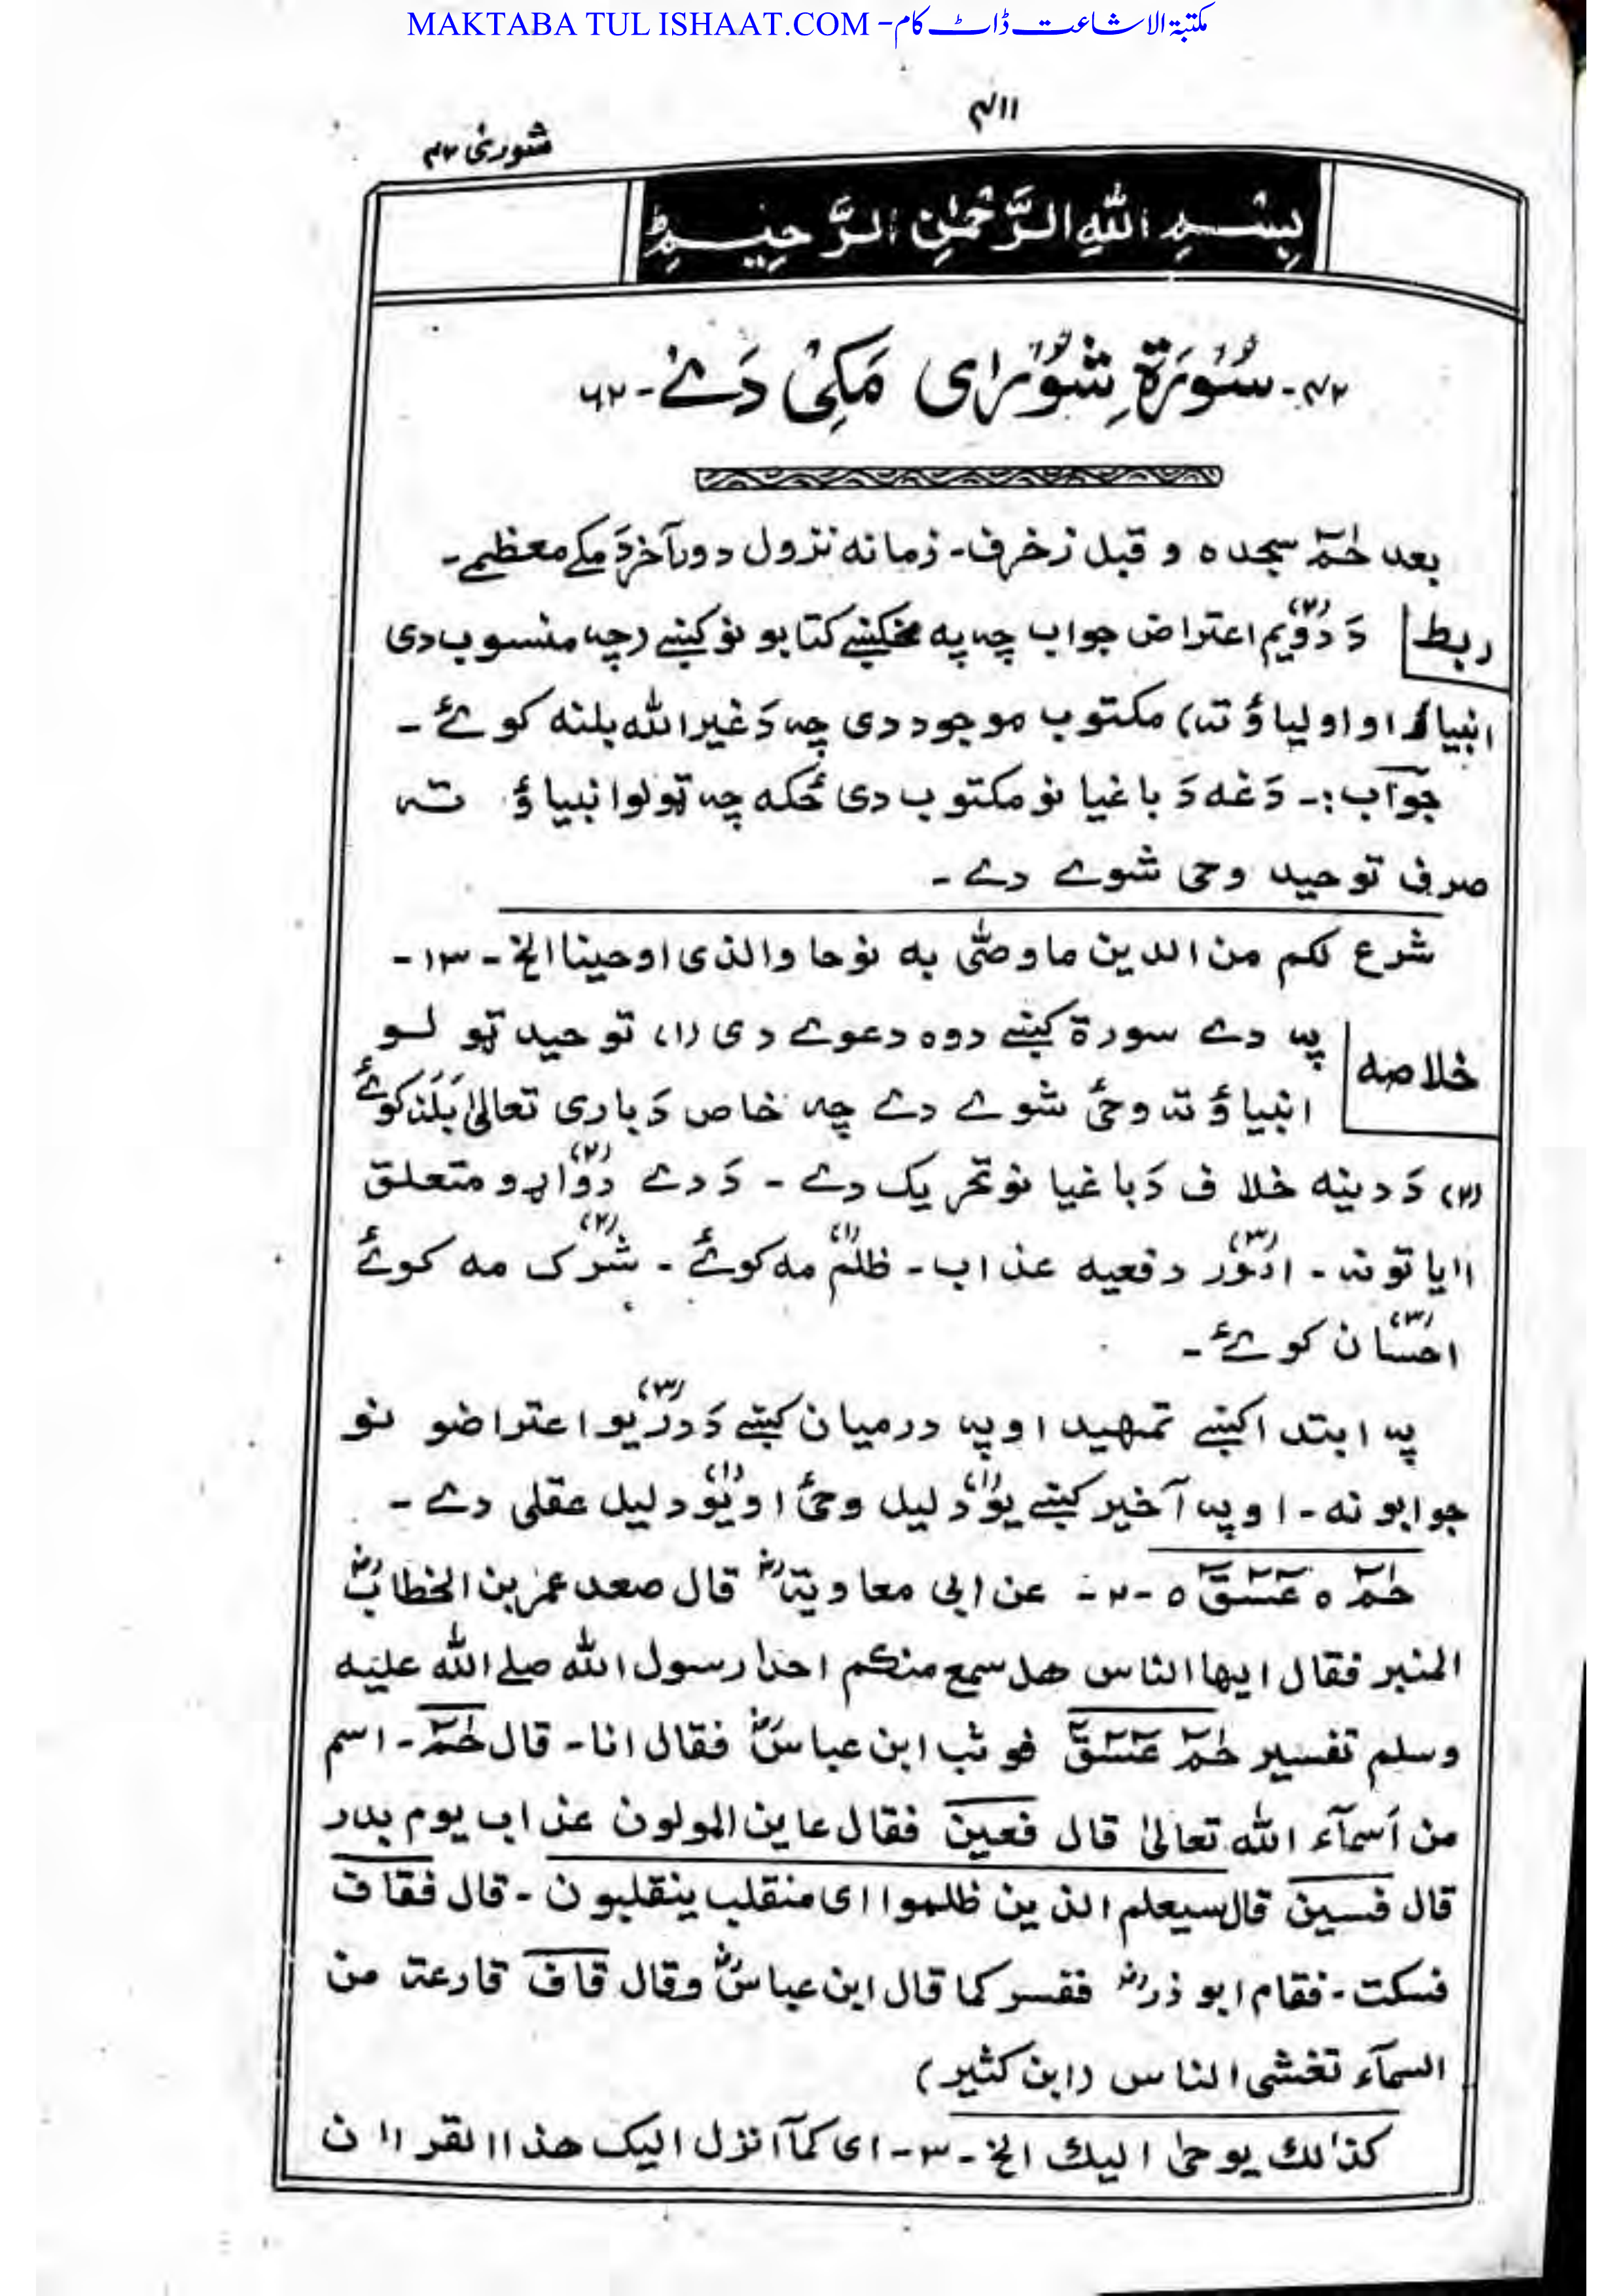 MAKTABA TUL ISHAAT.COM - مکتبة الاشاعت ڈاٹ کام
۴۱۱
شورٰی ۴۲
بِسْمِ اللهِ الرَّحْمٰنِ الرَّحِيْمِ
۴۲- سُوْرَةِ شُوْرٰای مَکِیْ دَےْ - ۶۲
بعد حٰمٓ سجده و قبل زخرف- زمانه نزول دور آخر دَ مکے معظمے-
ربط دَ دوّیم (۲) اعتراض جواب چہ په مخکنیے کتابو نو کښے (چہ منسوب دی
انبیاء او اولیاؤ تہ) مکتوب موجود دی چہ دَ غیر الله بلنه کوئے -
جوآب:- دَغه دَ باغیا نو مکتوب دی ځکه چہ ټولو انبیاؤ تہ
صرف توحید وحی شوے دے -
شرع لکم من الدین ما وصّٰی به نوحا والذی اوحینا الخ - ۱۳-
خلاصه پہ دے سورۃ کښے دوه دعوے دی (۱) توحید ټولو
انبیاؤ تہ وحیٔ شوے دے چہ خاص دَ باری تعالیٰ بَلَنَہ کوئے
(۲) دَ دینه خلاف دَ باغیا نو تحریک دے - دَ دے دوّاړو (۲) متعلق
اٰیا تونہ - امور (۳) دفعیه عذاب - ظلم (۱) مه کوئے - شرک (۲) مه کوئے
احسان (۳) کوئے -
پہ ابتدا کښے تمهید او پہ درمیان کښے دَ دریو (۳) اعتراضو نو
جوابونه - او پہ آخیر کښے یو (۱) دلیل وحیٔ او یو (۱) دلیل عقلی دے -
حٰمٓ ۰ عٓسٓقٓ ۰ -۲- عن ابی معاویةؓ قال صعد عمر بن الخطابؓ
المنبر فقال ایها الناس هل سمع منکم احدا رسول الله صلے الله علیه
وسلم تفسیر حٰمٓ عٓسٓقٓ فوثب ابن عباسؓ فقال انا- قال حٰمٓ- اسم
من اَسمآء الله تعالیٰ قال فعین فقال عاین المولون عذاب یوم بدر
قال فسین قال سیعلم الذین ظلموا ای منقلب ینقلبون - قال فقاف
فسکت- فقام ابو ذرؓ ففسر کما قال ابن عباسؓ وقال قاف قارعة من
السمآء تغشی الناس (ابن کثیر)
کذٰلك یوحیٰ الیك الخ - ۳- ای کمآ انزل الیک هذا القراٰن